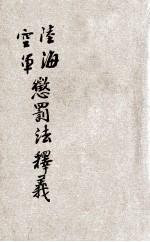 陸海空軍懲罰法釋義